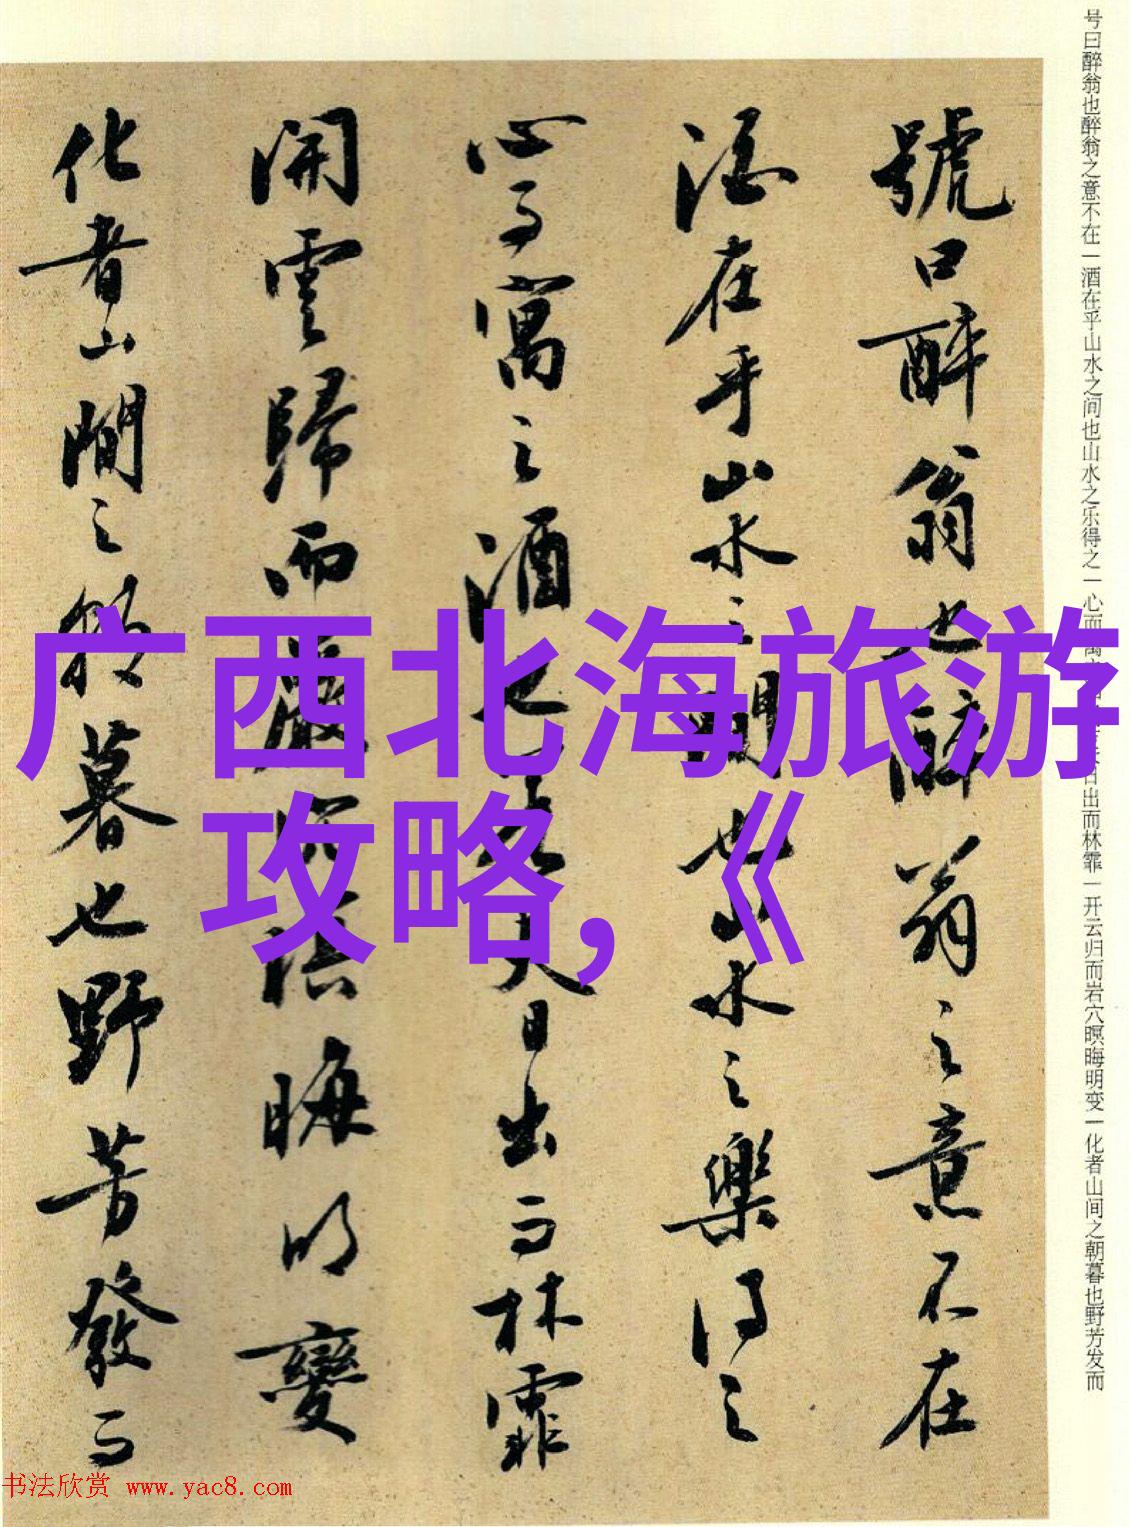 号曰醉翁也醉翁之意不在一酒在乎山水之间也山水之乐得之一心而 日出而林霏一开云归而岩穴暝晦明变一化者山间之朝暮也野芳发而
號曰醉翁也醉翁之意不在
酒在乎山水之間也山水之樂得之
心而寓之酒也 夫日出而林霏
開雲歸而巖穴暝晦明變
化者山間之朝暮也野芳發而
广西北海旅游
攻略,《
书法欣赏 www.yac8.com